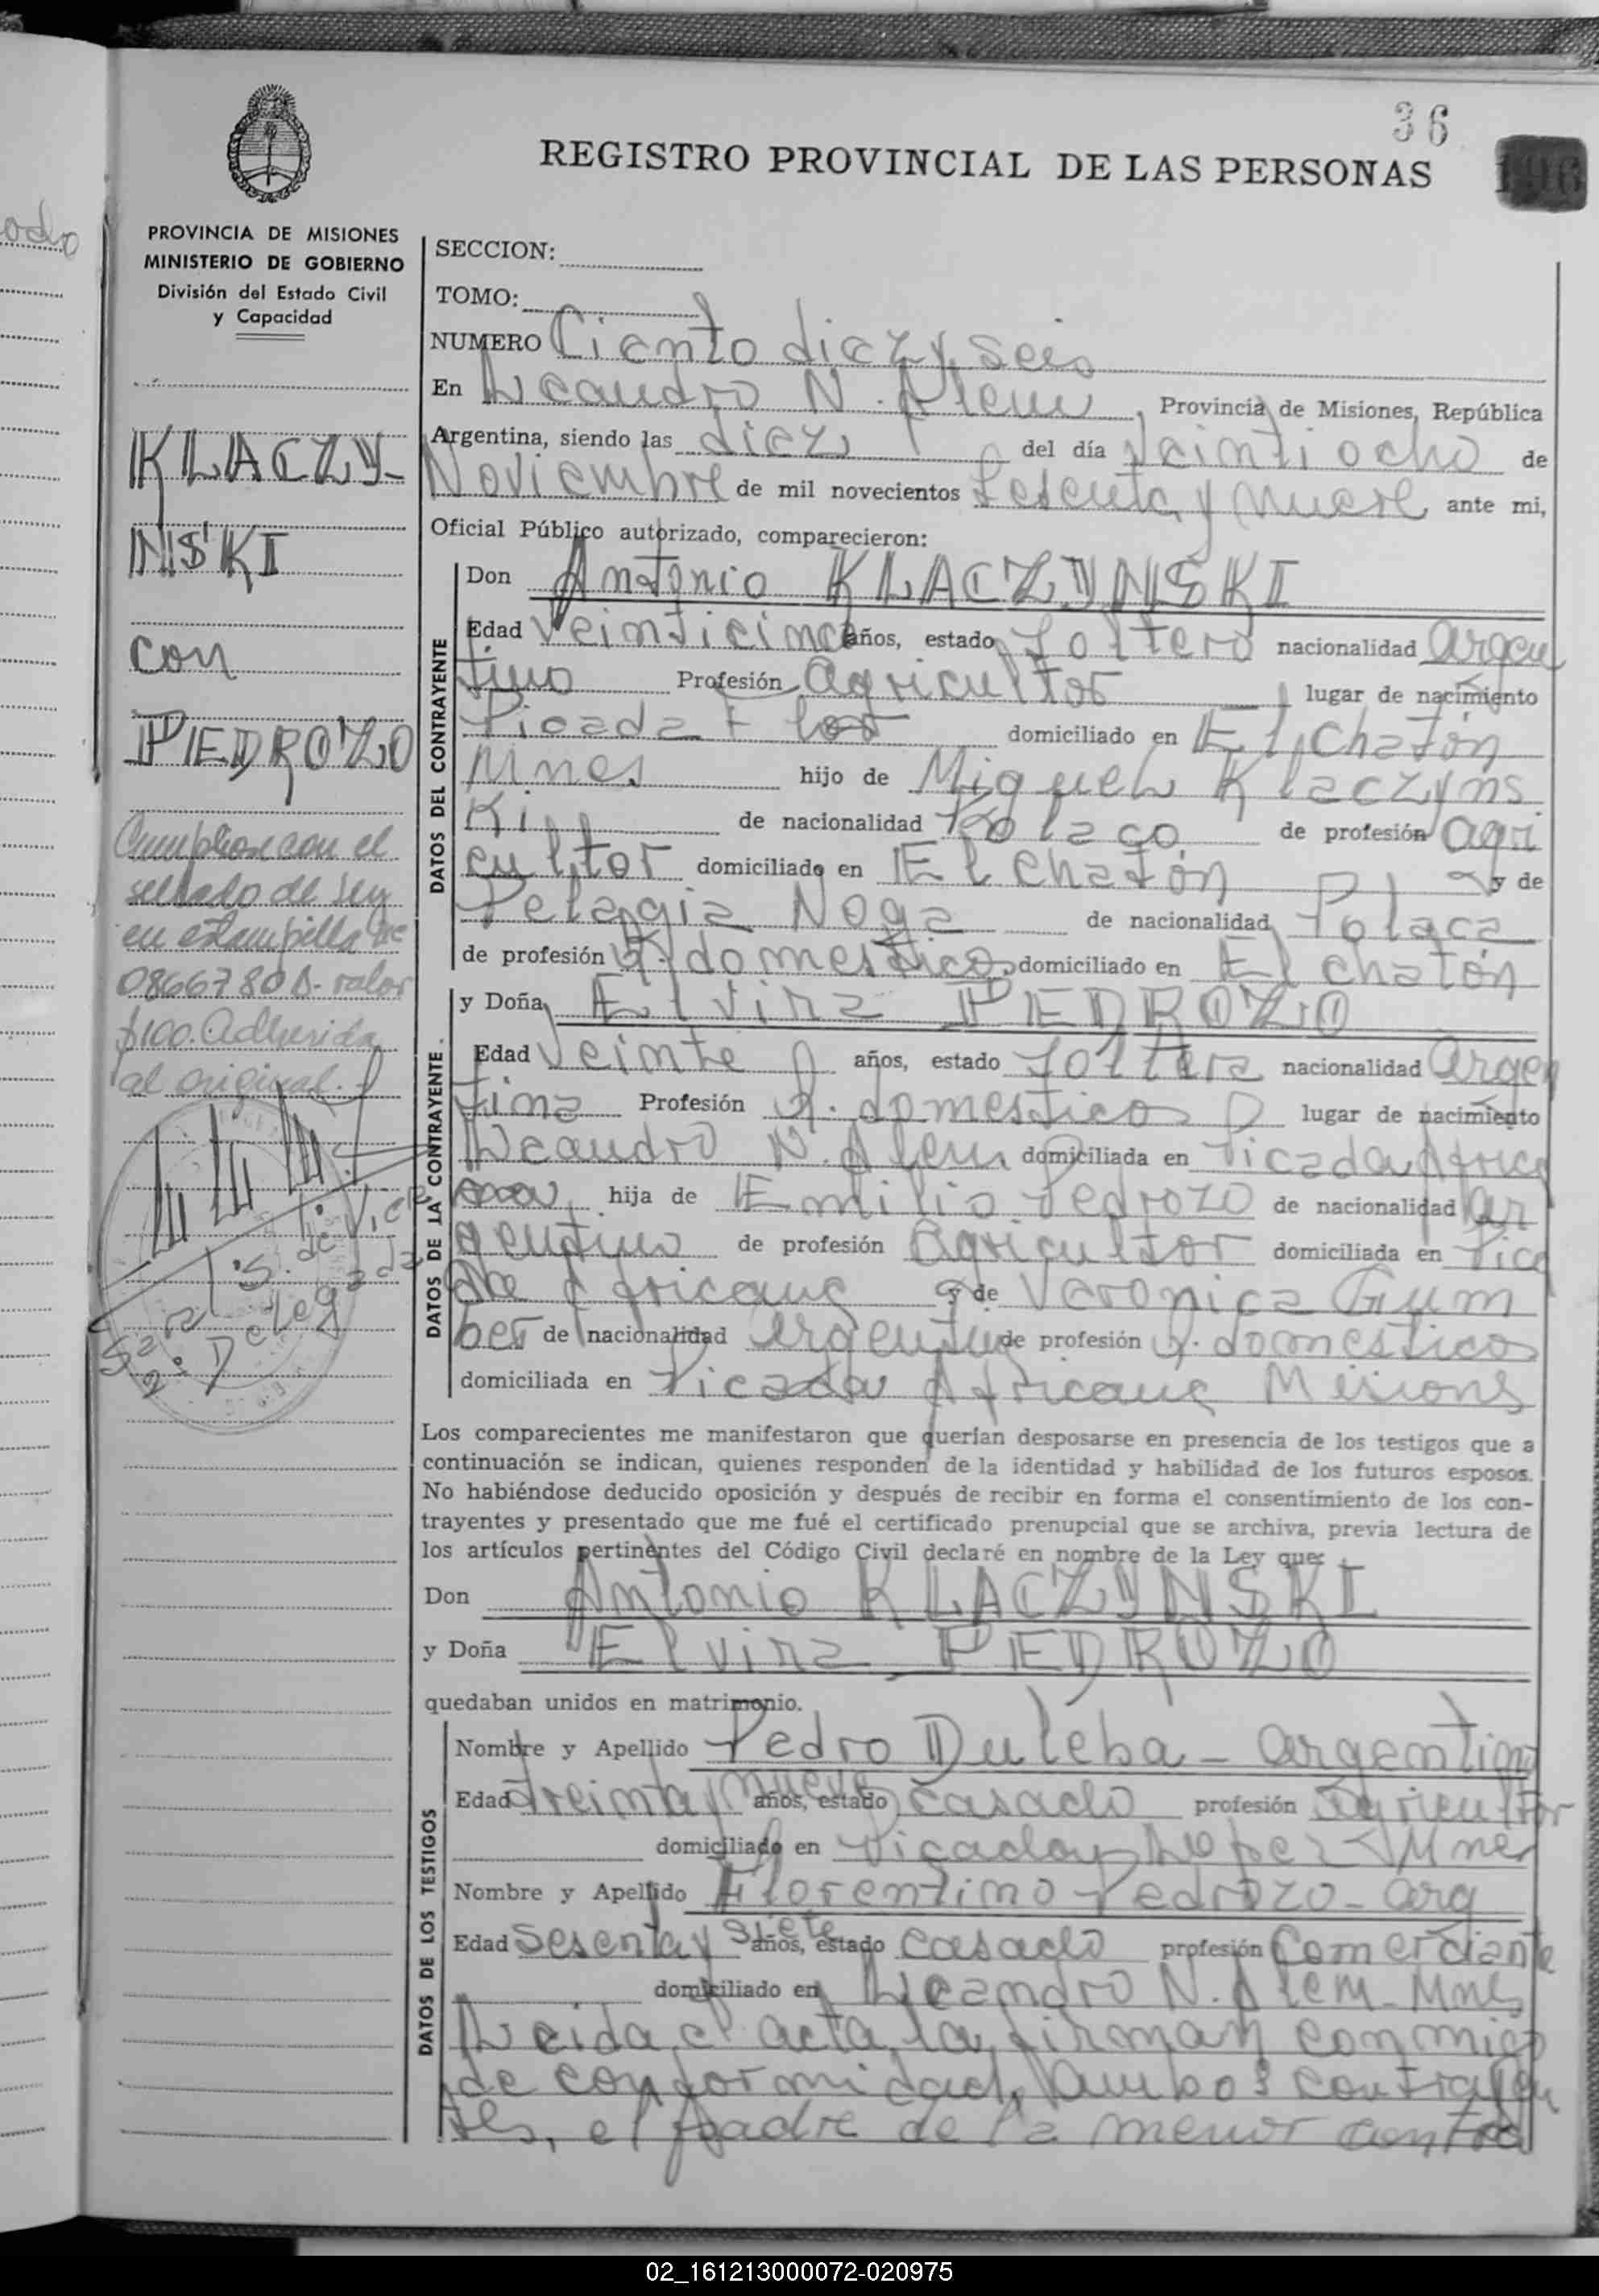 36
REGISTRO PROVINCIAL DE LAS PERSONAS
196
PROVINCIA DE MISIONES
MINISTERIO DE GOBIERNO
División del Estado Civil
y Capacidad
KLACZY-
NSKI
con
PEDROZO
Cumplion con el
sellado de Ley
en estampilla Nº
0866780 D- valor
$100. Adherida
al original.
S. de Vier
2º Delegada
SECCION:
TOMO:
NUMERO Ciento diez y seis
En Leandro N. Alem, Provincia de Misiones, República
Argentina, siendo las diez del día Veintiocho de
Noviembre de mil novecientos Sesenta y nueve ante mi,
Oficial Público autorizado, comparecieron:
DATOS DEL CONTRAYENTE
Don Antonio KLACZYNSKI
Edad Veinticinco años, estado Soltero nacionalidad Argen
tino Profesión Agricultor lugar de nacimiento
Picada Flor domiciliado en El Chatón
Mnes hijo de Miguel Klaczyns
ki de nacionalidad Polaco de profesión agri
cultor domiciliado en El Chatón y de
Pelagia Noga de nacionalidad Polaca
de profesión Q. domestico domiciliado en El Chatón
DATOS DE LA CONTRAYENTE.
y Doña Elvira PEDROZO
Edad Veinte años, estado Soltera nacionalidad Argen
tina Profesión Q. domesticos lugar de nacimiento
Leandro N. Alem domiciliada en Picada Africa
na hija de Emilio Pedrozo de nacionalidad Ar
gentino de profesión Agricultor domiciliada en Pica
da Africana y de Veronica Gum
ber de nacionalidad argentina de profesión Q. domesticos
domiciliada en Picada Africana Misiones
Los comparecientes me manifestaron que querían desposarse en presencia de los testigos que a
continuación se indican, quienes responden de la identidad y habilidad de los futuros esposos.
No habiéndose deducido oposición y después de recibir en forma el consentimiento de los con-
trayentes y presentado que me fué el certificado prenupcial que se archiva, previa lectura de
los artículos pertinentes del Código Civil declaré en nombre de la Ley que:
Don Antonio KLACZYNSKI
y Doña Elvira PEDROZO
quedaban unidos en matrimonio.
DATOS DE LOS TESTIGOS
Nombre y Apellido Pedro Duleba - argentino
Edad treinta y nueve años, estado casado profesión Agricultor
domiciliado en Picada Lopez - Mnes
Nombre y Apellido Florentino Pedrozo - arg
Edad sesenta y siete años, estado casado profesión Comerciante
domiciliado en Leandro N. Alem - Mnes
Leida el acta la firman conmigo
de conformidad, ambos contrayen
tes, el padre de la menor contra
02_161213000072-020975